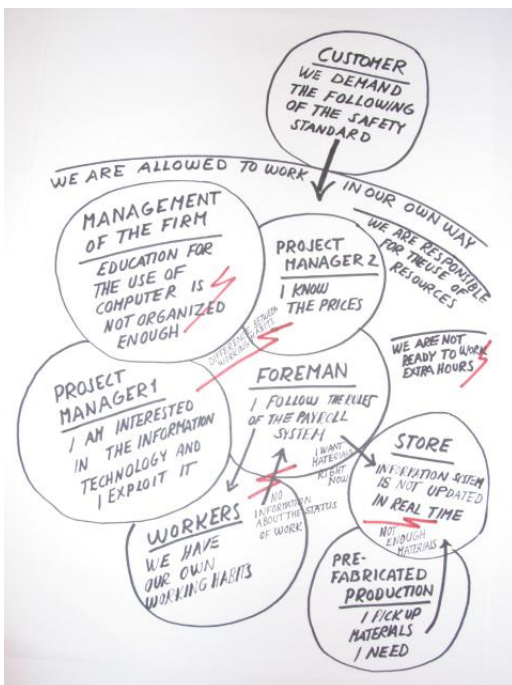 CUSTOMER
WE DEMAND
THE FOLLOWING
OF THE SAFETY
STANDARD
WE ARE ALLOWED TO WORK IN OUR OWN WAY
WE ARE RESPONSIBLE
FOR THE USE OF
RESOURCES
MANAGEMENT
OF THE FIRM
EDUCATION FOR
THE USE OF
COMPUTER IS
NOT ORGANIZED
ENOUGH
PROJECT
MANAGER 2
I KNOW
THE PRICES
DIFFERENCE BETWEEN
WORKING HABITS
WE ARE NOT
READY TO WORK
EXTRA HOURS
PROJECT
MANAGER 1
I AM INTERESTED
IN THE INFORMATION
TECHNOLOGY AND
I EXPLOIT IT
FOREMAN
I FOLLOW THE RULES
OF THE PAYROLL
SYSTEM
I WANT
MATERIALS
RIGHT
NOW
STORE
INFORMATION SYSTEM
IS NOT UPDATED
IN REAL TIME
NO
INFORMATION
ABOUT THE STATUS
OF WORK
WORKERS
WE HAVE
OUR OWN
WORKING HABITS
NOT
ENOUGH
MATERIALS
PRE-
FABRICATED
PRODUCTION
I PICK UP
MATERIALS
I NEED